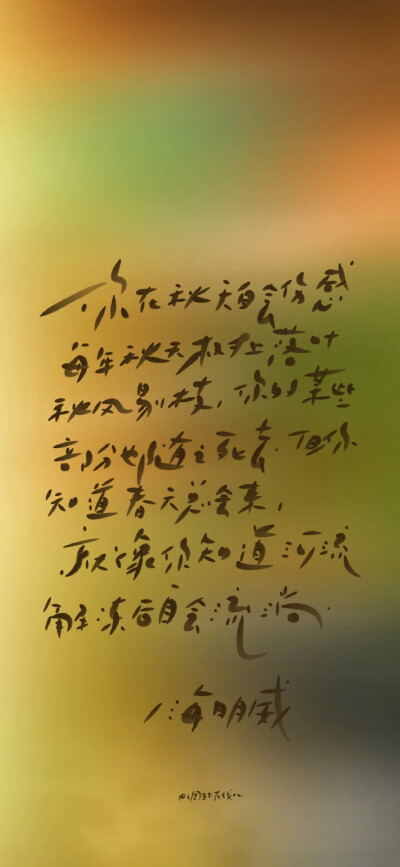 你在秋天自会伤感
每年秋天树上落叶
秋风剔枝，你的某些
部份也随之死去.但你
知道春天总会来，
就像你知道河流
解冻后自会流淌.
海明威